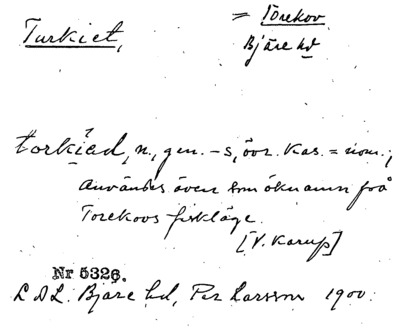 Turkiet,
= Torekov
Bjäre hd
torkiad, n., gen. -s, övr. kas. = nom.;
användes även som öknamn på
Torekovs fiskläge.
[V. Karup]
Nr 5326.
L D L. Bjäre hd, Per Larsson 1900.